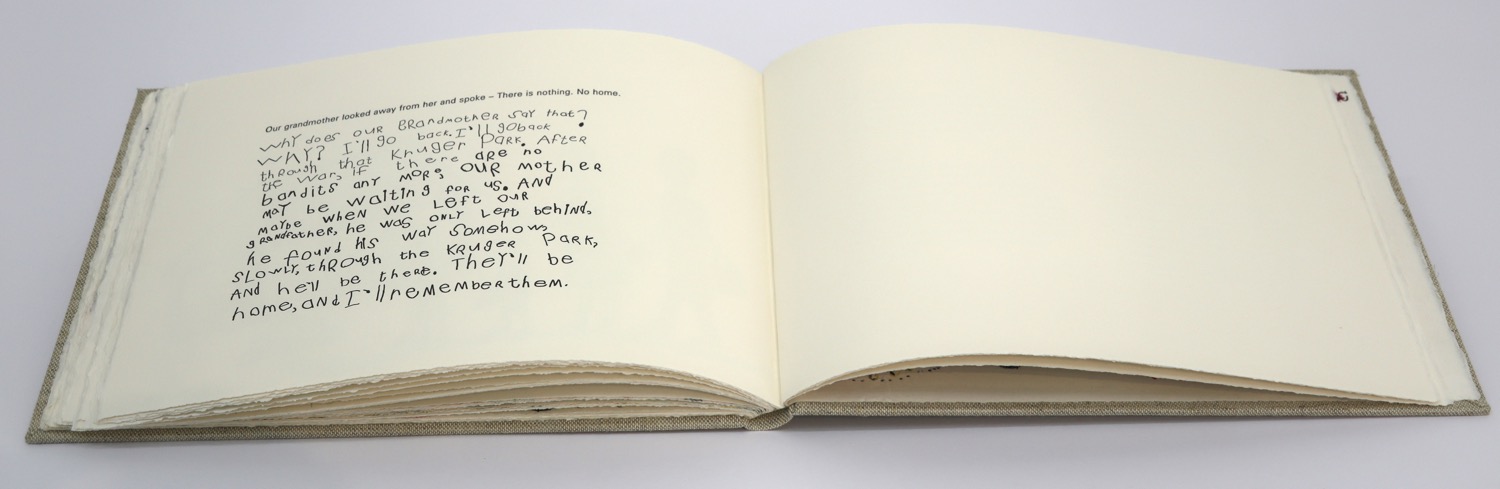 Our grandmother looked away from her and spoke – There is nothing. No home.
WhY does ouR GRandMotheR SaY that?
WhY? I'll go back. I'll goback
thRough that KRugeR PaRK. AfteR
the waR, if theRe aRe no
bandits anY MoRe, ouR MotheR
MaY be waiting foR us. ANd
MaYbe wheN we Left ouR
gRandfatheR, he was oNLY Left behind,
he fouNd his waY soMehow,
SLowLY, thRough the KRugeR PaRK,
ANd he'll be theRe. TheY'll be
hoMe, aNd I'll ReMeMbeRtheM.